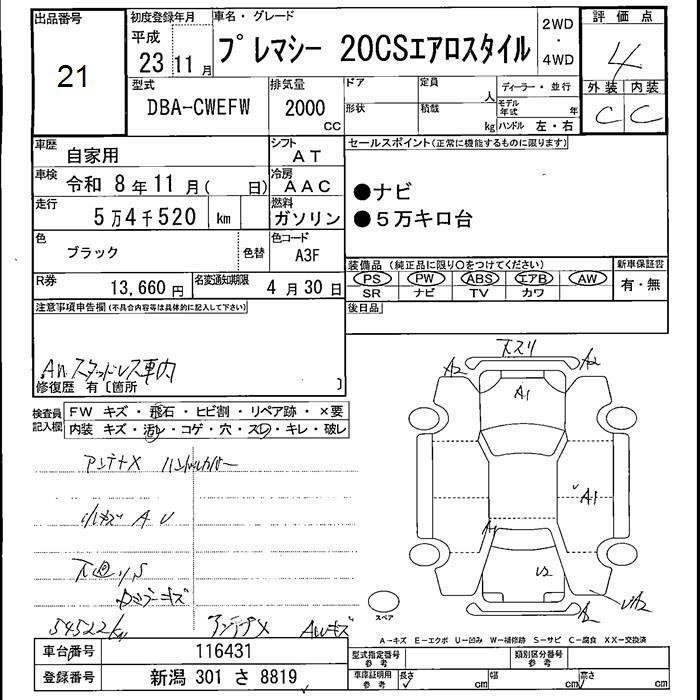 出品番号
21
初度登録年月
平成
23 11月
車名・グレード
プレマシー 20CSエアロスタイル
2WD
・
4WD
評価点
4
外装 内装
C C
型式
DBA-CWEFW
排気量
2000
CC
ドア
形状
定員
人
積載
kg
ディーラー・並行
モデル年式
年
ハンドル 左・右
車歴
自家用
シフト
AT
車検
令和 8年11月( 日)
冷房
AAC
走行
5万4千520 km
燃料
ガソリン
色
ブラック
色替
色コード
A3F
R券
13,660円
名変通知期限
4月30日
セールスポイント(正常に機能するものに限ります)
●ナビ
●5万キロ台
装備品 (純正品に限り○をつけてください)
PS PW ABS エアB AW
SR ナビ TV カワ
新車保証書
有・無
後日品
注意事項申告欄(不具合内容等は具体的に記入して下さい)
AW スタッドレス車内
修復歴 有〔箇所 〕
検査員
記入欄
FW キズ・飛石・ヒビ割・リペア跡・×要
内装 キズ・汚レ・コゲ・穴・スレ・キレ・破レ
アンテナX ハンドルカバー
小キズ A U
下廻りS
54522km
アンテナX
AWキズ
ススリ
A2
A2
A1
A1
A
U2
A2
スペア
A-キズ E-エクボ U-凹み W-補修跡 S-サビ C-腐食 XX-交換済
車台番号
116431
登録番号
新潟 301 さ 8819
型式指定番号
参考
類別区分番号
参考
車庫証明用
参考
長さ
cm
幅
cm
高さ
cm